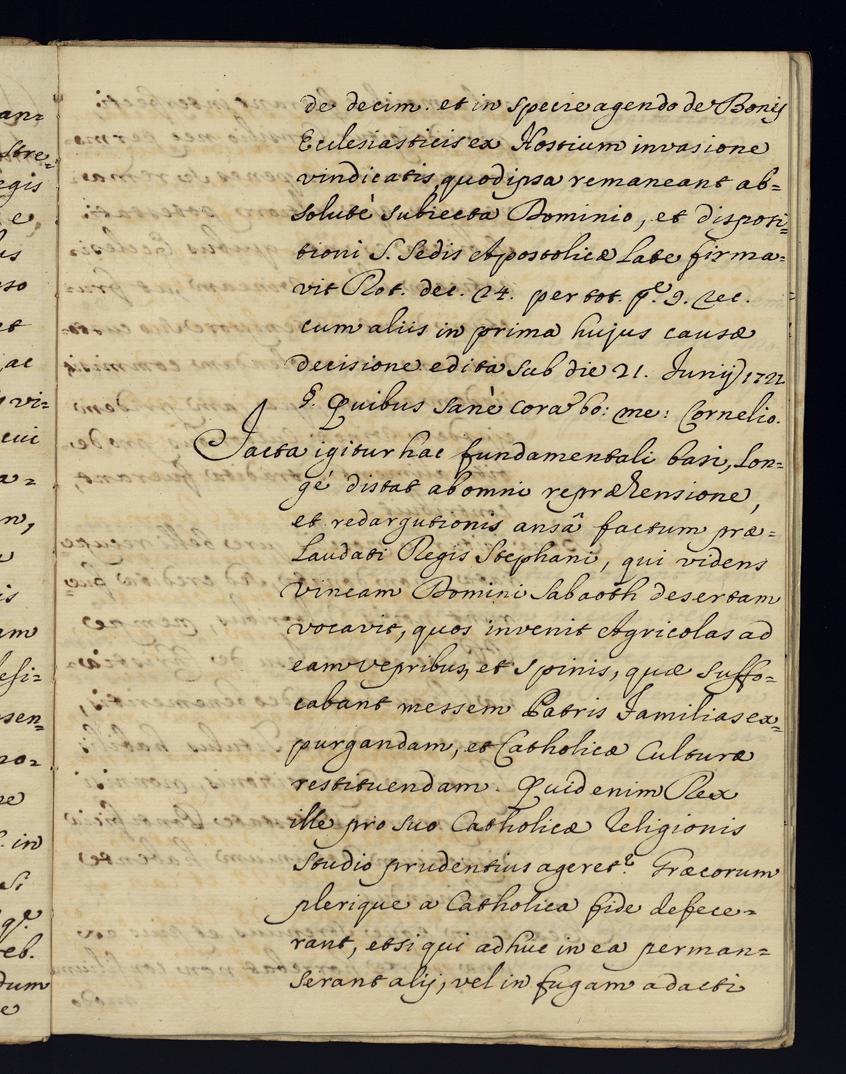 an=
stre=
egis
e
us
so
et
ac
vi=
cui
a=
n,
is
am
esi=
sen=
no=
ne
in
si
qe.
eb.
dum
e
de decim. et in specie agendo de Bonis
Ecclesiasticis ex Hostium invasione
vindicatis, quod ipsa remaneant ab=
solutè subiecta Dominio, et disposi=
tioni S. Sedis Apostolicæ late firma=
vit Rot. dec. 24. per tot. pe. 9. rec.
cum aliis in prima hujus causæ
decisione edita sub die 21. Junij 1722
§. Quibus sanè cora bo: me: Cornelio.
Jacta igitur hac fundamentali basi, lon=
gè distat ab omni repræhensione,
et redargutionis ansâ factum præ=
laudati Regis Stephani, qui videns
vineam Domini Sabaoth desertam
vocavit, quos invenit Agricolas ad
eam vepribus, et spinis, quæ suffo=
cabant messem Patris Familias ex=
purgandam, et Catholicæ Culturæ
restituendam. Quid enim Rex
ille pro suo Catholicæ Religionis
studio prudentius ageret? Græcorum
plerique a Catholica fide defece=
rant, et si qui adhuc in ea perman=
serant alij, vel in fugam adacti